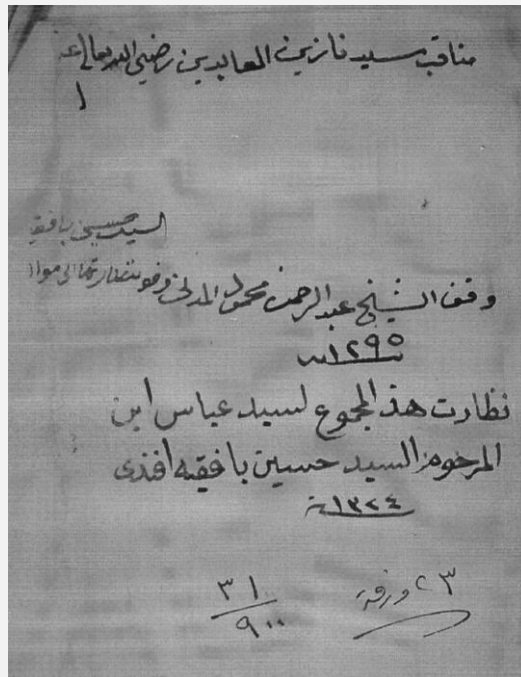 مناقب سيدنا زين العابدين رضي الله تعالى عنه
١
السيد حسين بافقيه
وقف الشيخ عبد الرحمن محمود المدني وفوض نظارتها الى
١٢٩٥ سنة
نظارت هذ المجموع لسيد عباس ابن
المرحوم السيد حسين بافقيه افندى
١٣٢٤ سنة
٢٣ ورقة
٣١
٩٠٠